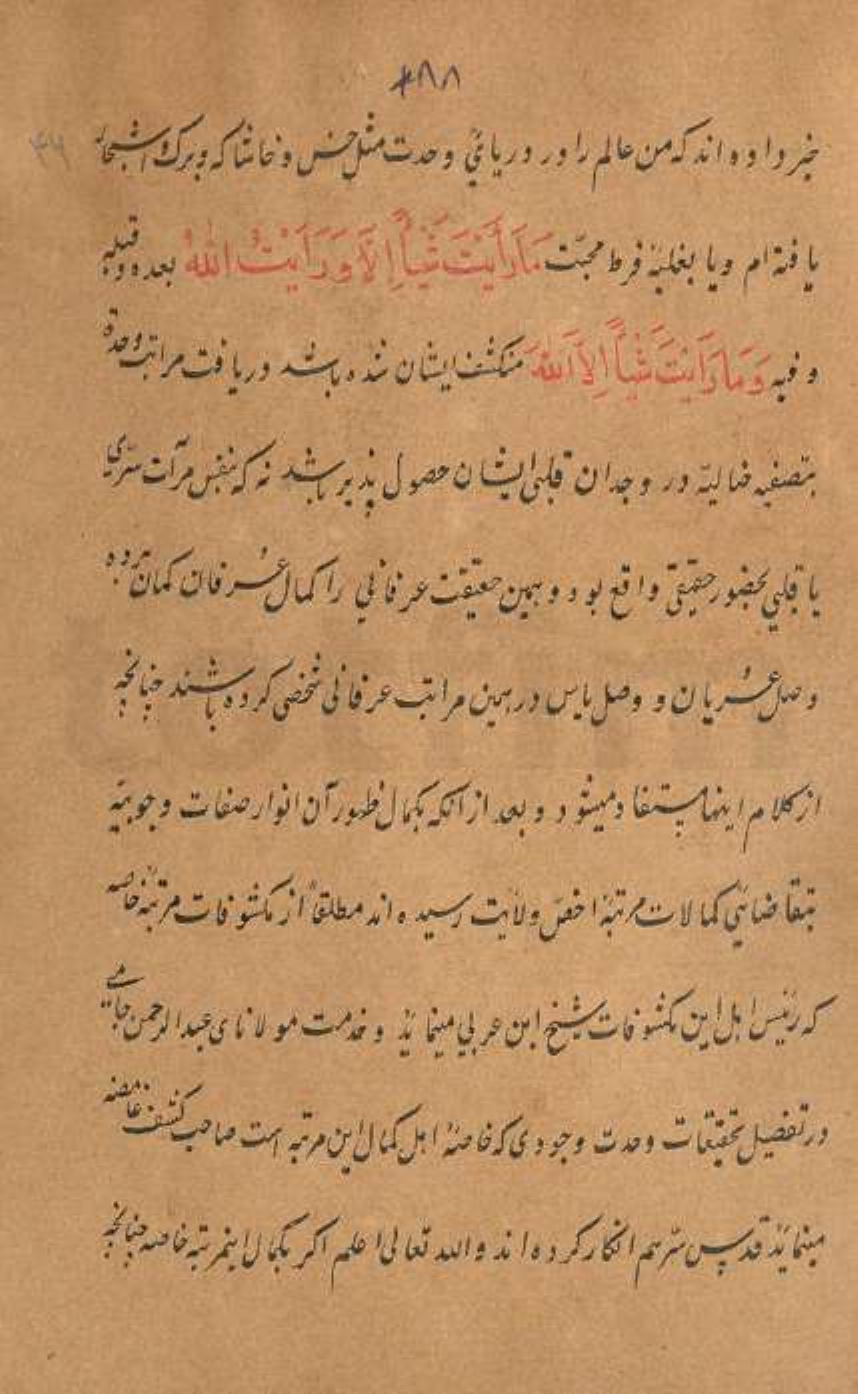 ۲۸۸
خبر داده اند که من عالم را در دریائی وحدت مثل خس و خاشاک و برک اشجار
یافته ام و یا بغلبهٔ فرط محبّت مَا رَأَیْتَ شَیْأً اِلَّا وَ رَأَیْتُ اللهَ بعده و قبله
و فیه وَ مَا رَأَیْتَ شَیْأً اِلَّا اللهَ منکشف ایشان شده باشد دریافت مراتب وحدة
بتصفیه خیالیّه در وجدان قلبی ایشان حصول پذیر باشد نه که بنفس مرآت سرّی
یا قلبی بحضور حقیقی واقع بود و همین حقیقت عرفانی را کمال عُرفان کمان برده
وصل عُریان و وصل بایس در همین مراتب عرفانی شخصی کرده باشند چنانچه
از کلام اینها مستفاد میشود و بعد از آنکه بکمال ظهور آن انوار صفات وجوبیّه
بتقاضائی کمالات مرتبهٔ اخصّ ولایت رسیده اند مطلقاً از مکشوفات مرتبهٔ خاصه
که رئیس اهل این مکشوفات شیخ ابن عربی مینماید و خدمت مولانای عبدالرحمن جامی
در تفصیل تحقیقات وحدت وجودی که خاصهٔ اهل کمال این مرتبه است صاحب کشف غامضه
مینماید قدس سرّهم انکار کرده اند و الله تعالی اعلم اکر بکمال اینمرتبه خاصه چنانچه